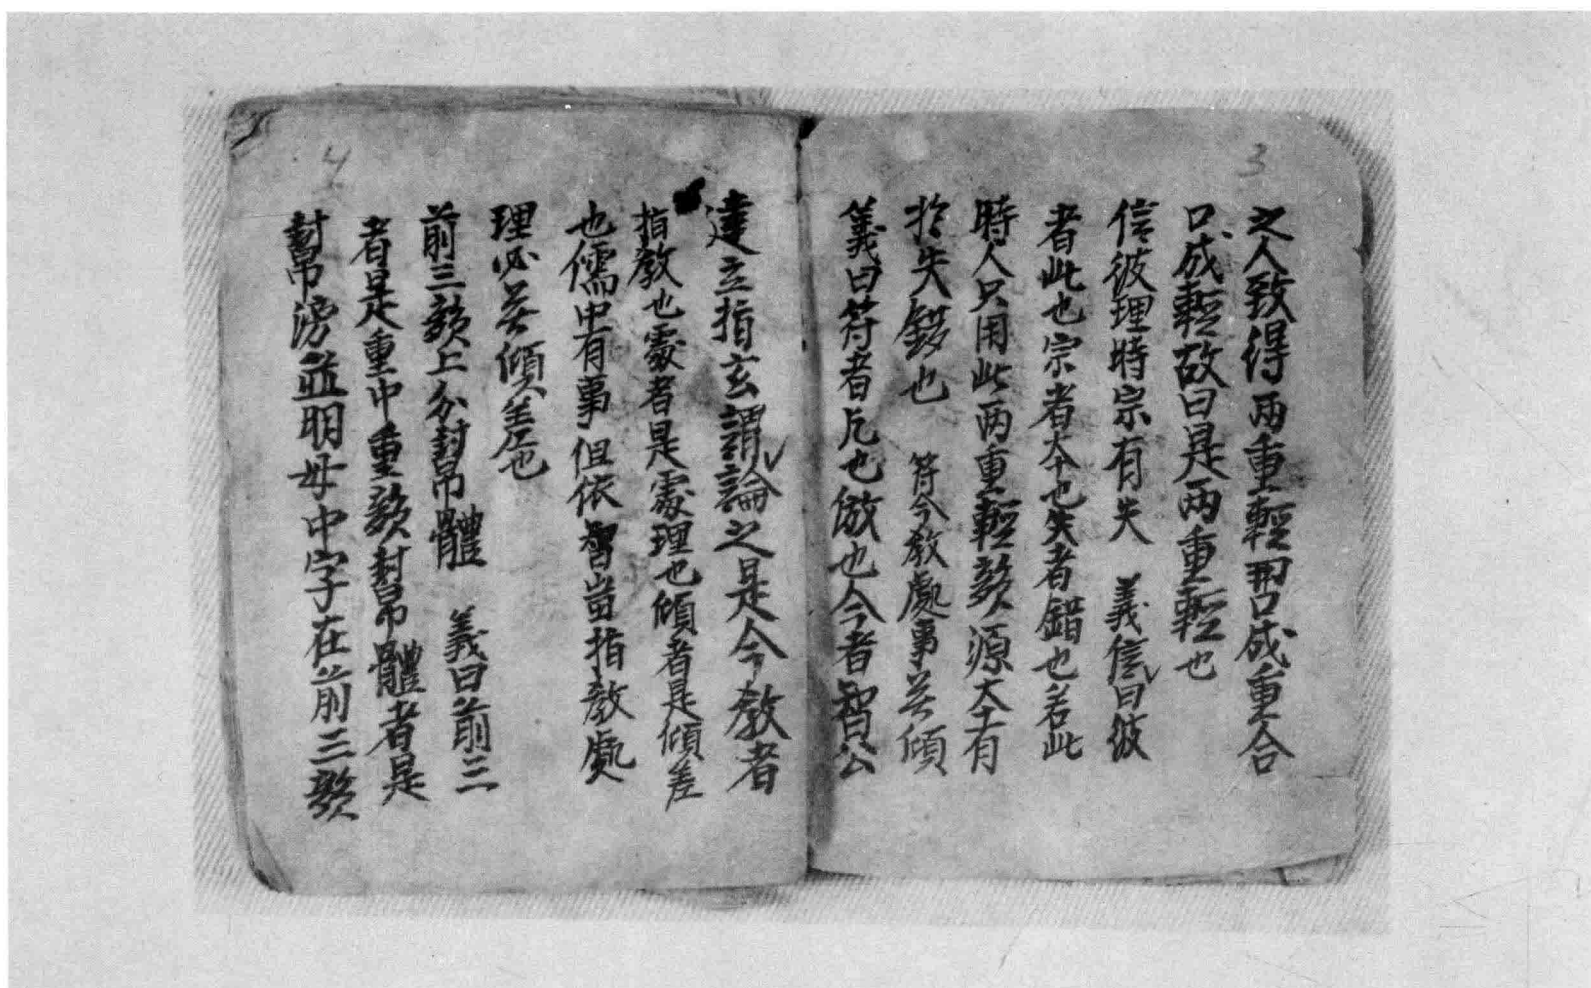 3
之人致得两重輕開口成重合
口成輕故曰是两重輕也
信彼理時宗有失　義信曰彼
者此也宗者大也失者錯也若此
時人只用此两重輕類源大士有
於失錯也　符今教處事若傾
義曰符者瓦也倣也今者智公
4
達立指玄謂論之是今教者
指教也處者是處理也傾者是傾差
也儒中有事但依智公指教處
理必若傾差也
前三類上分封帮體　義曰前三
者是重中重類封帮體者是
幇滂並明母中字在前三類